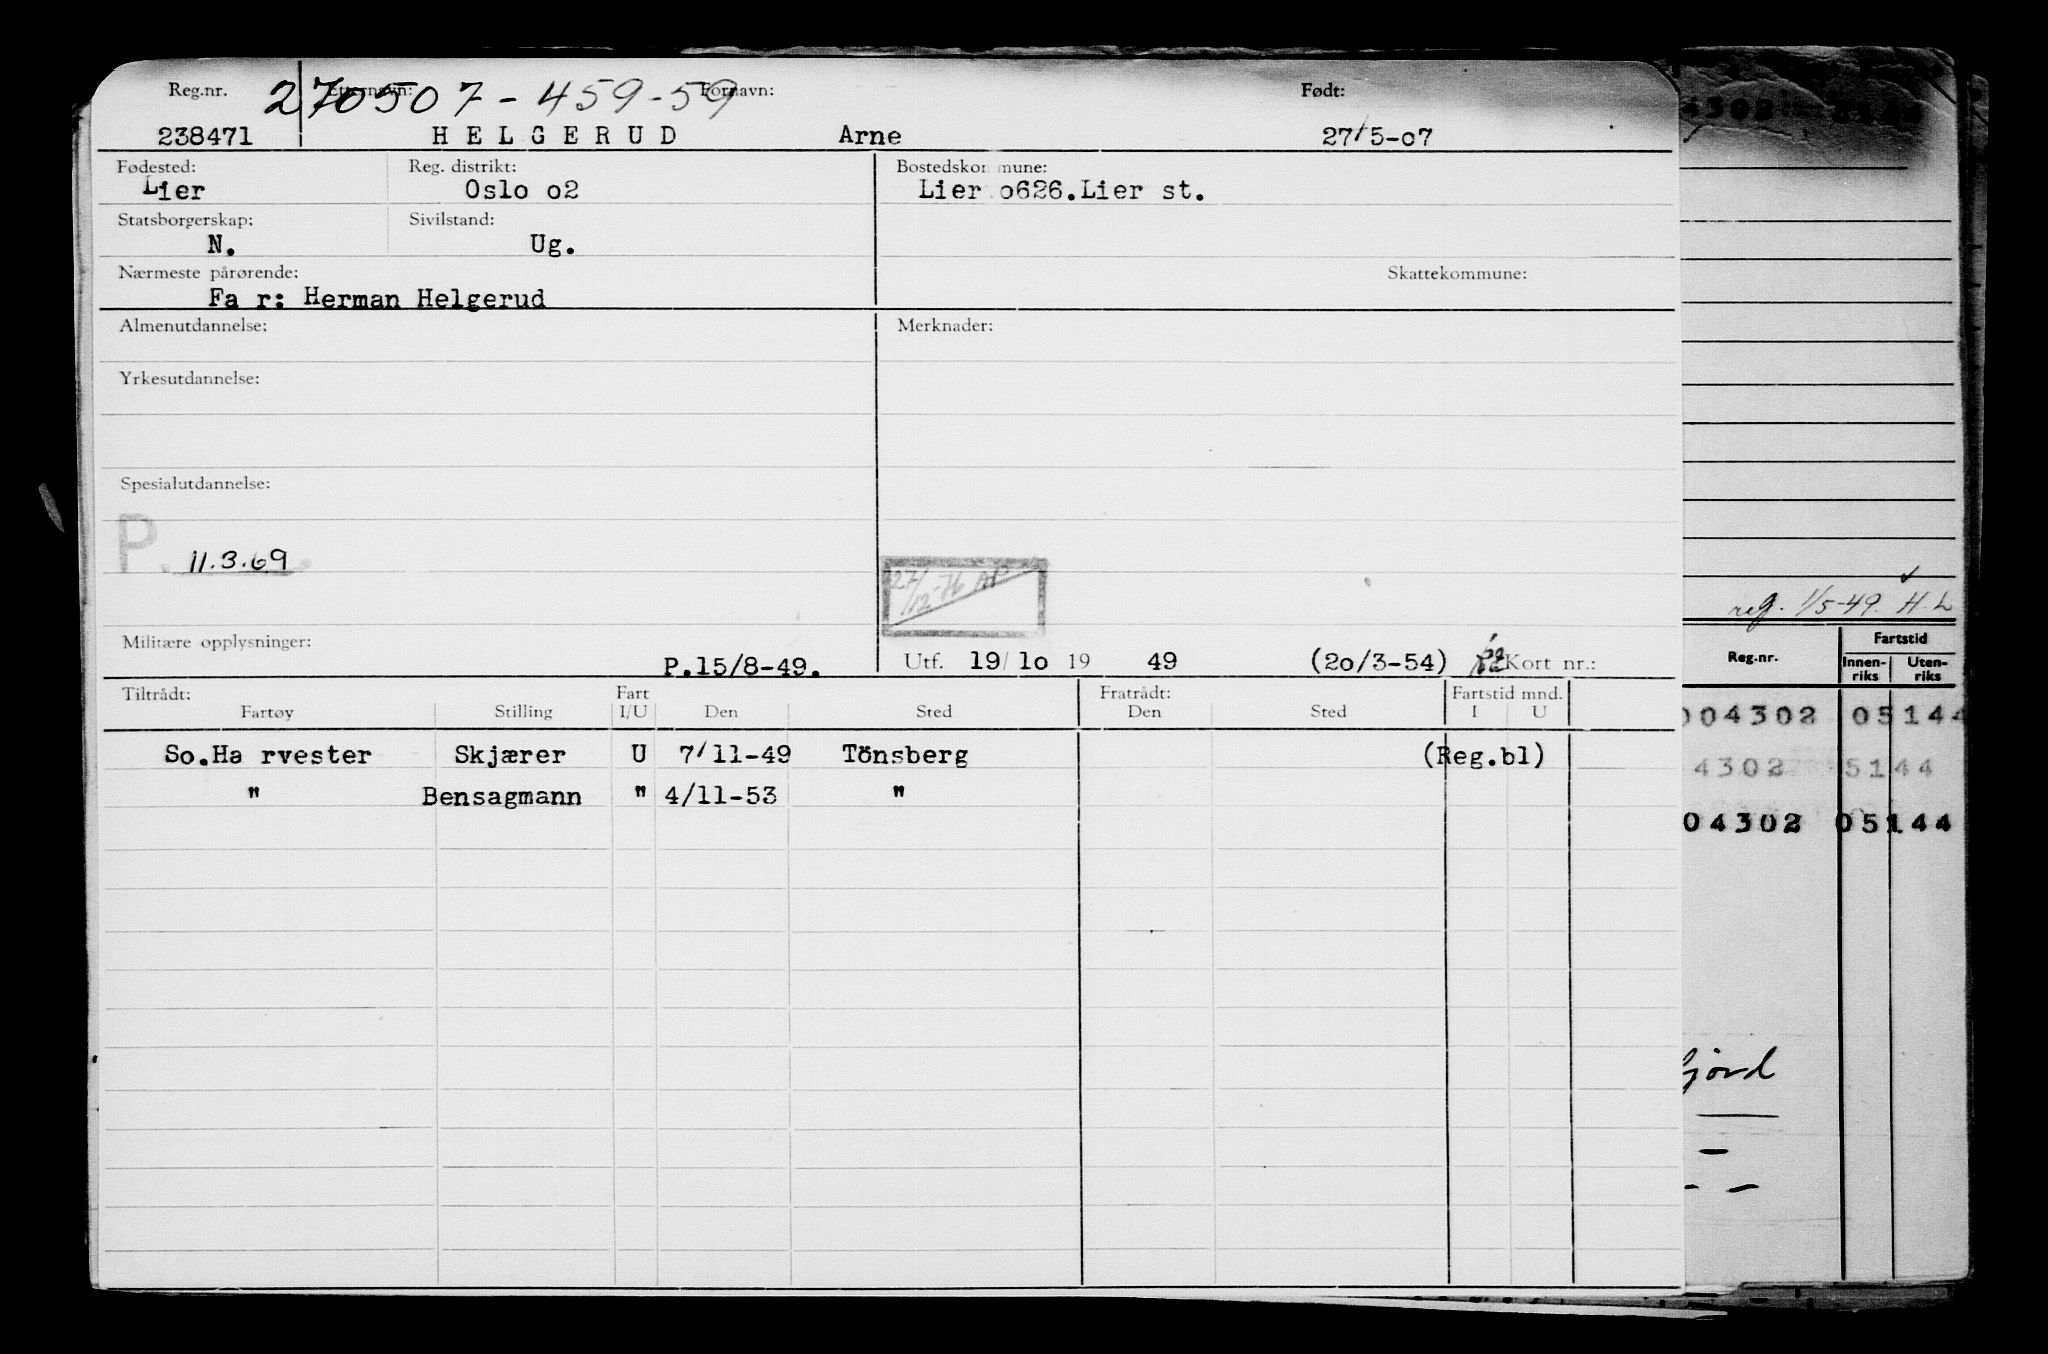 270507-459-59
Reg.nr. Etternavn: Fornavn: Født:
238471 HELGERUD Arne 27/5-07
Fødested: Reg. distrikt: Bostedskommune:
Lier Oslo o2 Lier o626.Lier st.
Statsborgerskap: Sivilstand:
N. Ug.
Nærmeste pårørende: Skattekommune:
Fa r: Herman Helgerud
Almenutdannelse: Merknader:
Yrkesutdannelse:
Spesialutdannelse:
P. 11.3.69
27/12-76
reg. 1/5-49. H.L
Militære opplysninger: P.15/8-49. Utf. 19/10 19 49 (2o/3-54) Kort nr.:
Tiltrådt: Fart Fratrådt: Fartstid mnd.
Fartøy Stilling I/U Den Sted Den Sted I U
So.Ha rvester Skjærer U 7/11-49 Tönsberg (Reg.bl)
" Bensagmann " 4/11-53 "
4302
Reg.nr. Fartstid
Innen-riks Uten-riks
004302 05144
4302 5144
04302 05144
fjord